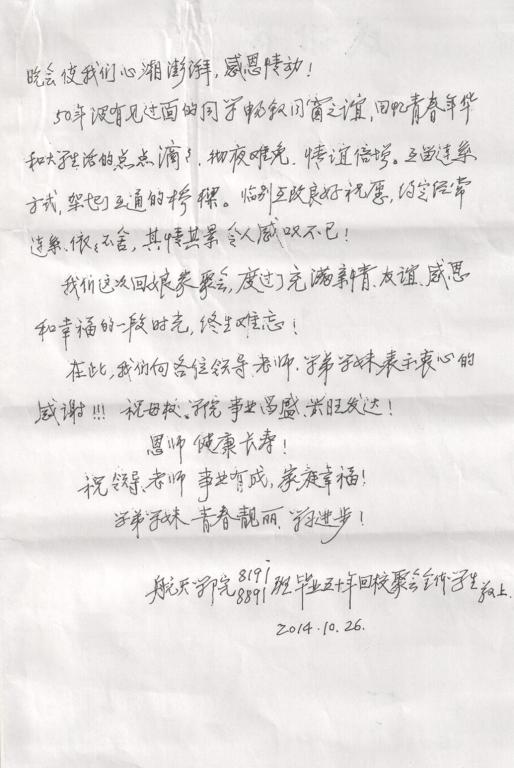 晚会使我们心湘澎湃，感恩情动！
50年没有见过面的同学畅叙同窗之谊，回忆青春年华
和大学生活的点点滴滴，彻夜难免，情谊倍增。互留连系
方式，架起了互通的桥梁。临别互致良好祝愿，约定经常
连系、依依不舍，其情其景令人感叹不已！
我们这次回娘家聚会，度过了充满亲情、友谊、感恩
和幸福的一段时光，终生难忘！
在此，我们向各位领导、老师、学弟学妹表示衷心的
感谢！！！祝母校、学院事业昌盛、兴旺发达！
恩师健康长寿！
祝领导、老师事业有成，家庭幸福！
学弟学妹青春靓丽、学习进步！
航天学院8191 8891班毕业五十年回校聚会全体学生敬上
2014.10.26.